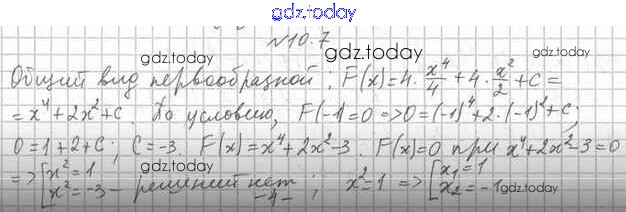 gdz.today
№10.7
gdz.today
Общий вид первообразной: F(x)=4·x⁴/4+4·x²/2+C=
gdz.today
=x⁴+2x²+C. По условию, F(-1)=0 =>0=(-1)⁴+2·(-1)²+C;
gdz.today
0=1+2+C; C=-3. F(x)=x⁴+2x²-3. F(x)=0 при x⁴+2x²-3=0
=>[x²=1
x²=-3 - решений нет; x²=1 =>[x₁=1
x₂=-1
gdz.today
-4-
gdz.today